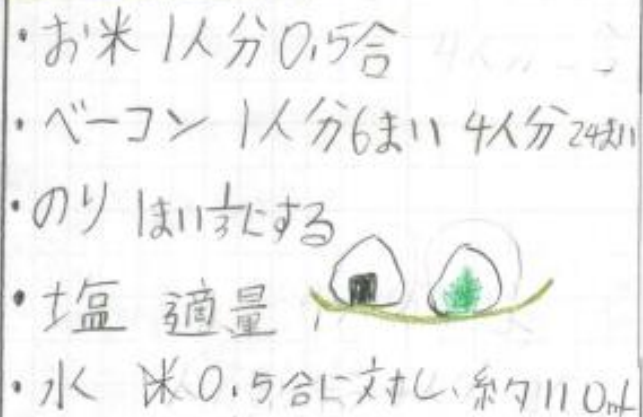 ・お米 1人分0.5合
・ベーコン 1人分6まい 4人分24まい
・のり 1まい1/3にする
・塩 適量
・水 米0.5合に対し、約110mL